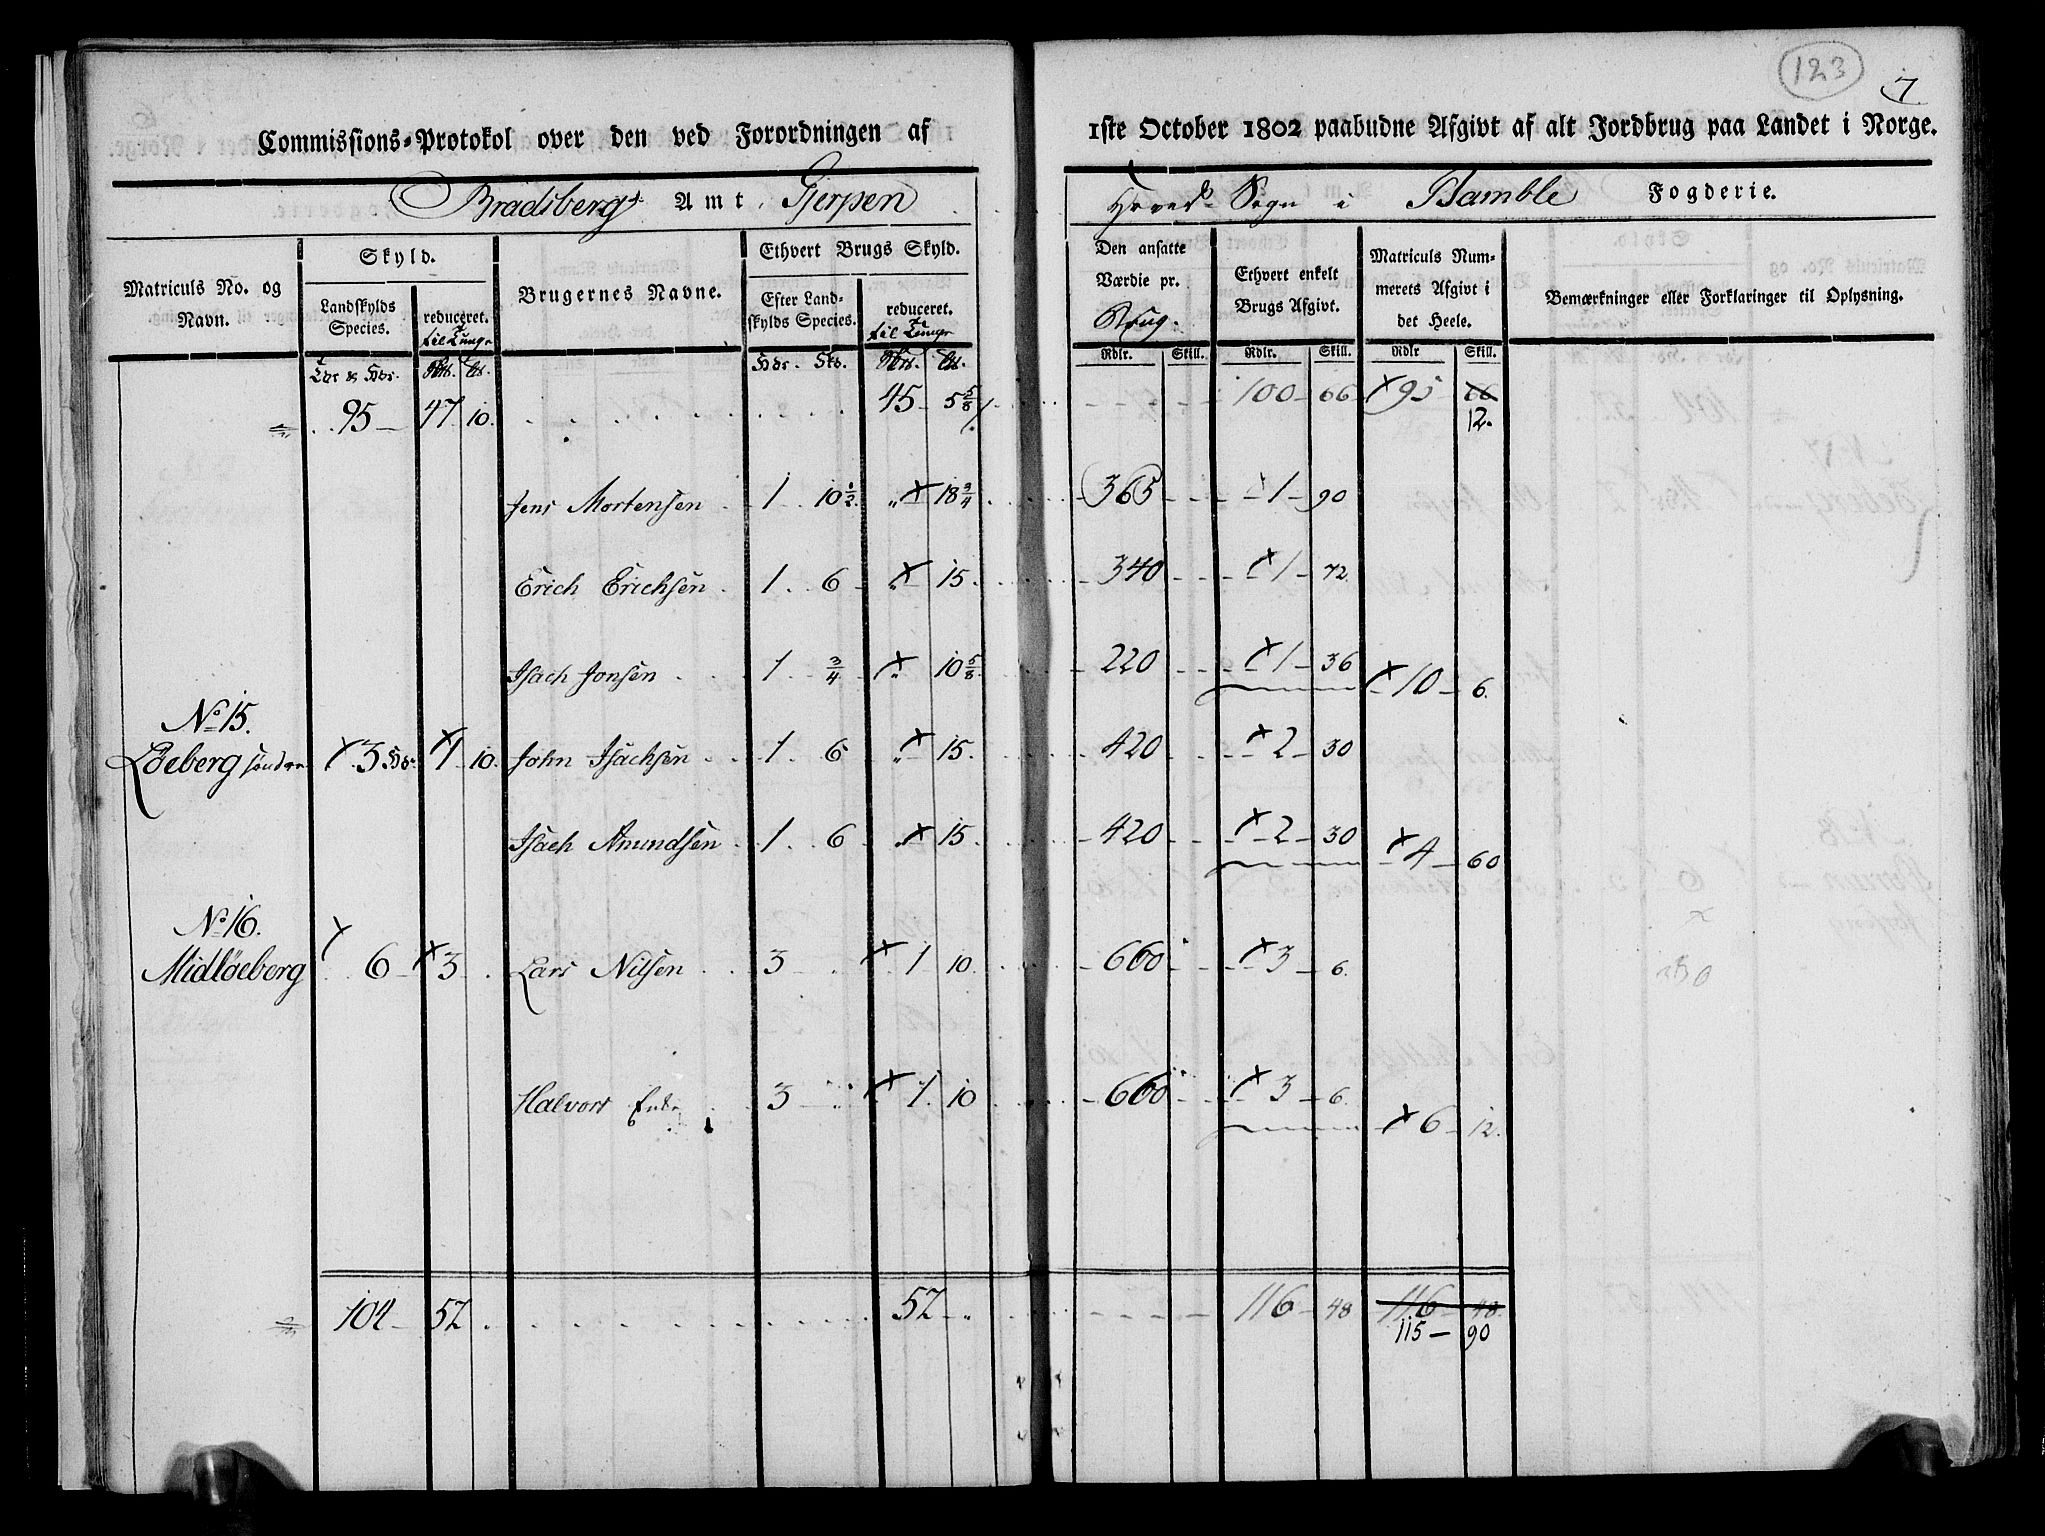 123
7
Commissions-Protokol over den ved Forordningen af 1ste October 1802 paabudne Afgivt af alt Jordbrug paa Landet i Norge.
Bradsbergs Amt Gjerpen Hoved Sogn i Bamble Fogderie.
Matriculs No. og Navn.
Skyld.
Landskylds Species.
reduceret. til Tunge
Brugernes Navne.
Ethvert Brugs Skyld.
Efter Landskylds Species.
reduceret. til Tunge
Den ansatte Værdie pr. Brug.
Ethvert enkelt Brugs Afgivt.
Matriculs Nummerets Afgivt i det Heele.
Bemærkninger eller Forklaringer til Oplysning.
Rdlr. Skill. Rdlr. Skill. Rdlr Skill.
95 47 10. 45 5 5/8 100 66 95 66
12.
Jens Mortensen 1 10 1/2 " 18 3/4 365 1 90
Erich Erichsen 1 6 " 15. 340 1 72
Isach Jonsen 1 3/4 " 10 5/8 220 1 36 10 6.
No 15.
Löeberg söndre 3 1 10. John Isachsen 1 6 " 15. 420 2 30
Isach Amundsen 1 6 " 15. 420 2 30 4 60
No 16.
Midlöeberg 6 3 Lars Nilsen 3 1 10. 660 3 6.
Halvor 3 1 10 660 3 6. 6 12.
104 52 52 " 116 48 116 48
115 90